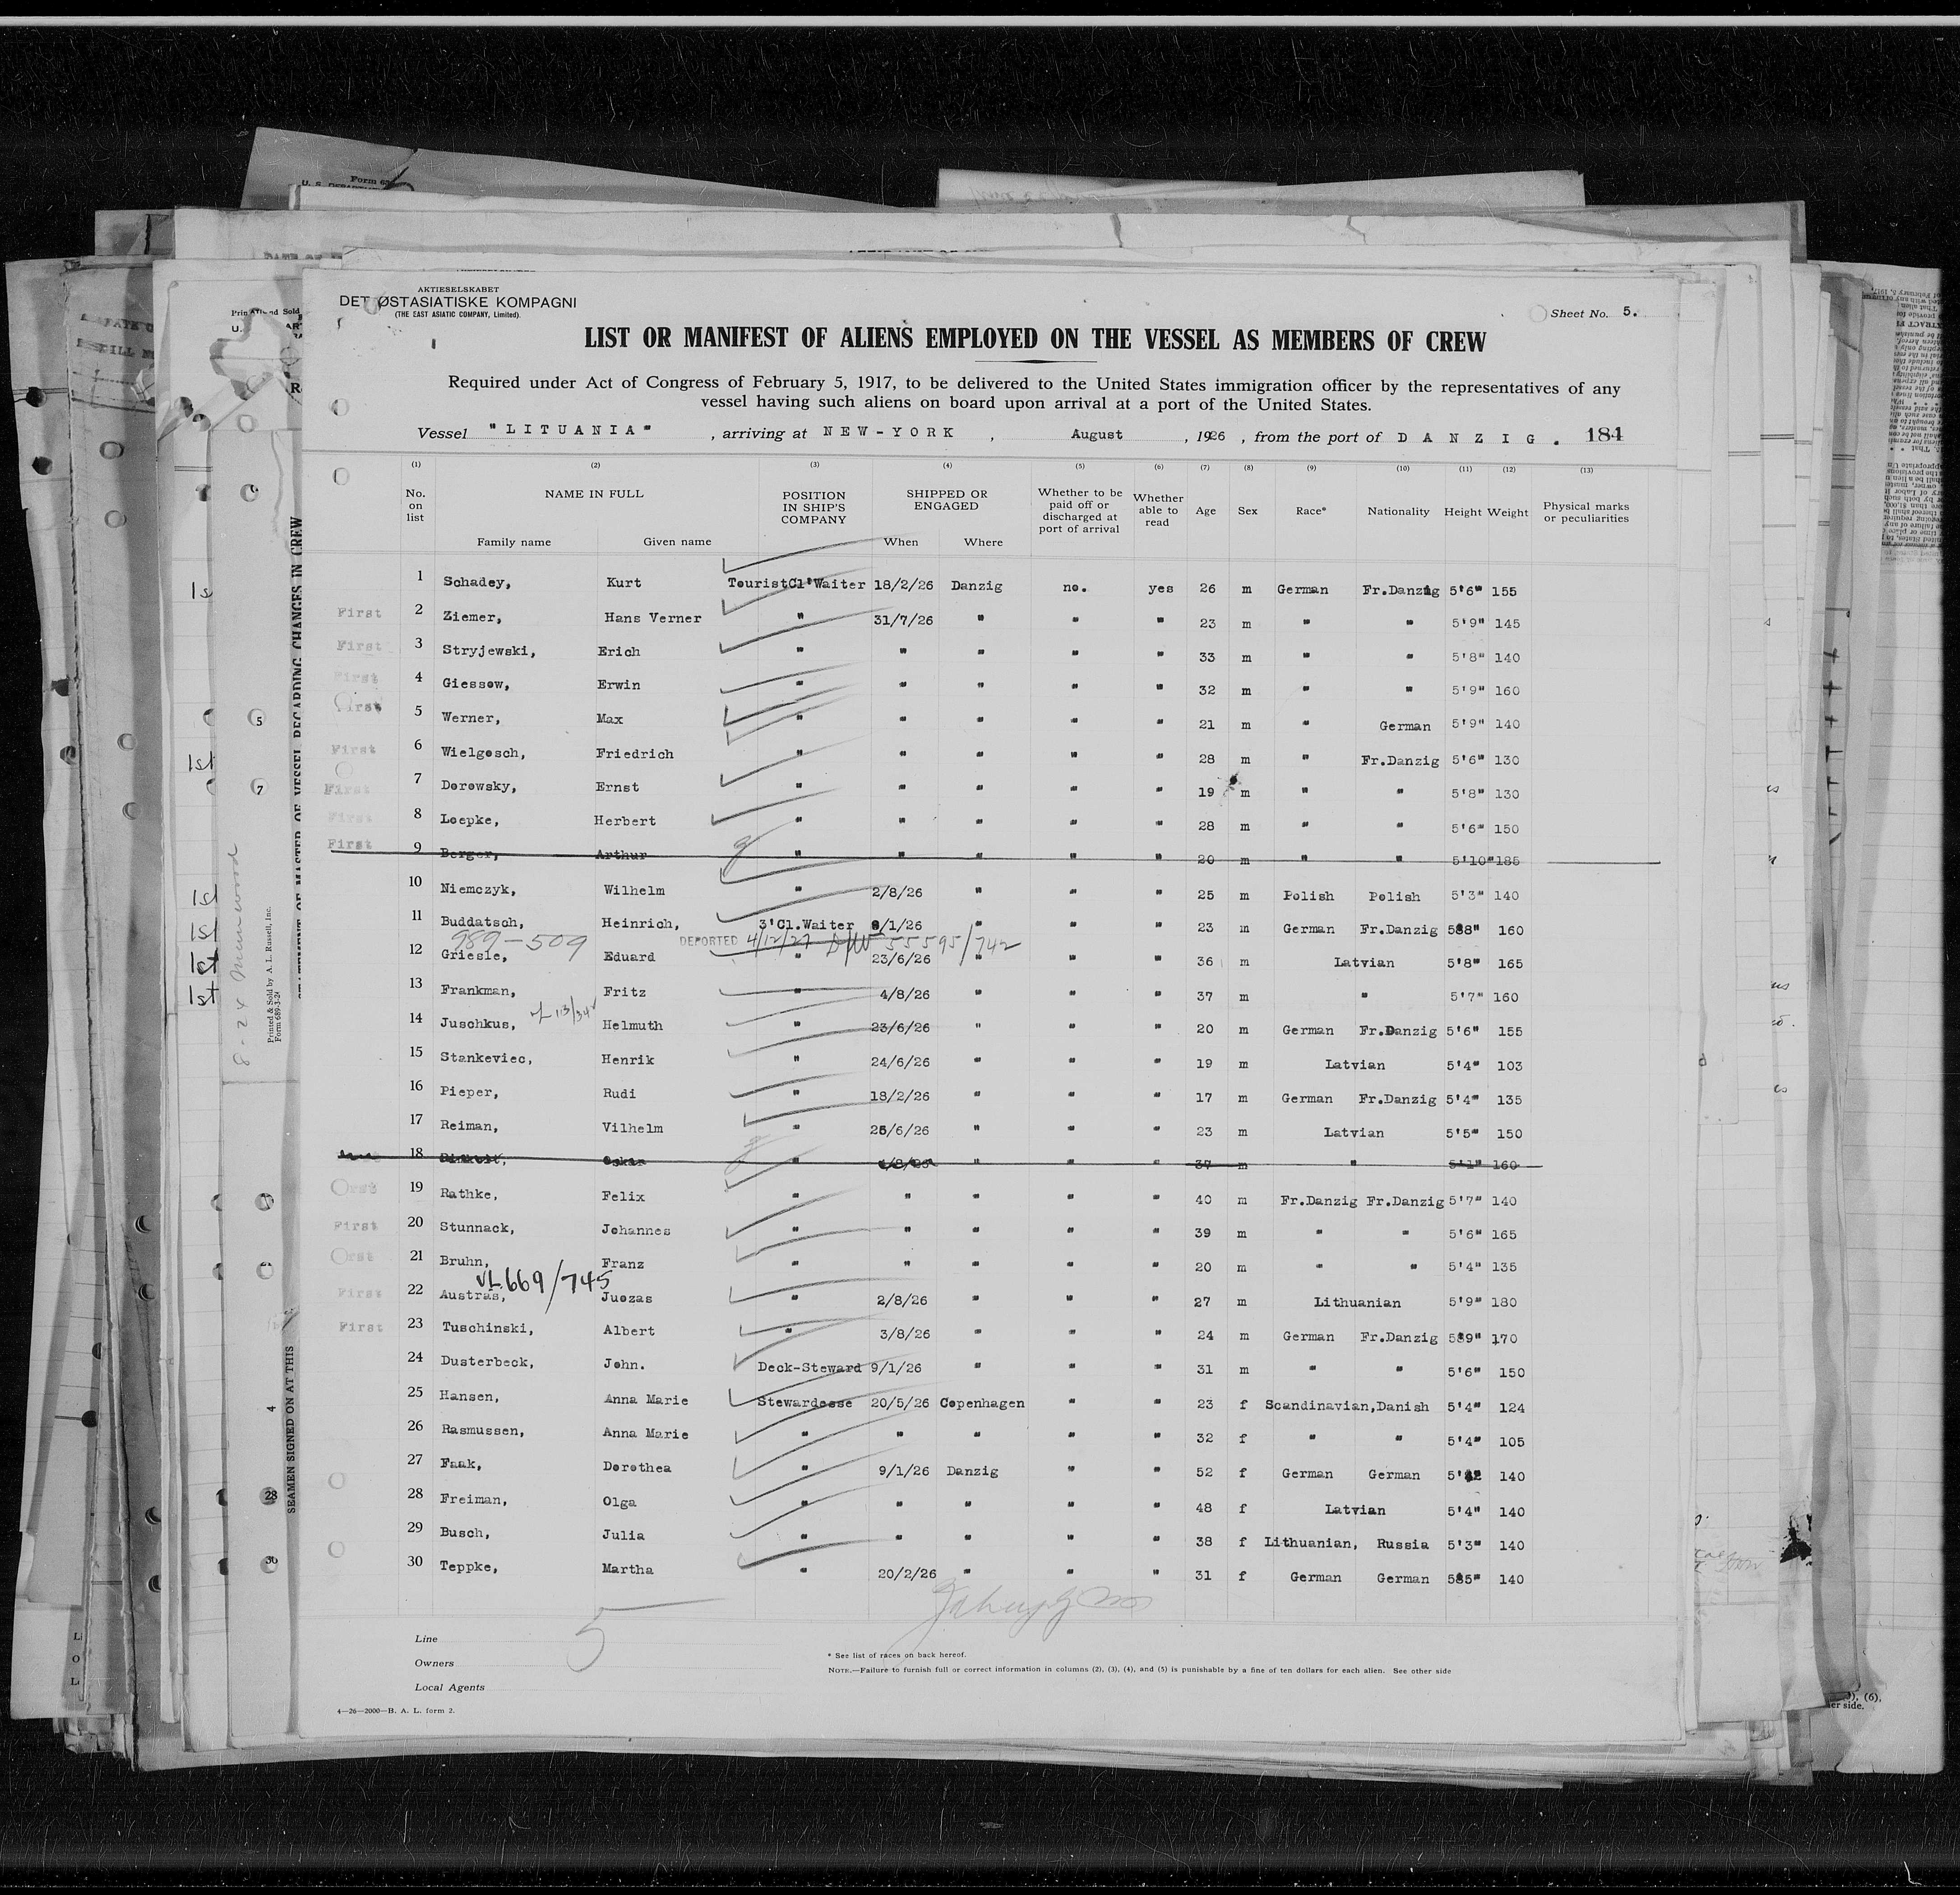 AKTIESELSKABET
DET ØSTASIATISKE KOMPAGNI
(THE EAST ASIATIC COMPANY, Limited).
Sheet No. 5.
LIST OR MANIFEST OF ALIENS EMPLOYED ON THE VESSEL AS MEMBERS OF CREW
Required under Act of Congress of February 5, 1917, to be delivered to the United States immigration officer by the representatives of any
vessel having such aliens on board upon arrival at a port of the United States.
Vessel "LITUANIA", arriving at NEW-YORK, August, 1926, from the port of DANZIG. 181
(1) (2) (3) (4) (5) (6) (7) (8) (9) (10) (11) (12) (13)
No. on list NAME IN FULL Family name Given name POSITION IN SHIP'S COMPANY SHIPPED OR ENGAGED When Where Whether to be paid off or discharged at port of arrival Whether able to read Age Sex Race* Nationality Height Weight Physical marks or peculiarities
1 Schadey, Kurt TouristCl'Waiter 18/2/26 Danzig no. yes 26 m German Fr.Danzig 5'6" 155
First 2 Ziemer, Hans Verner " 31/7/26 " " " 23 m " " 5'9" 145
First 3 Stryjewski, Erich " " " " " 33 m " " 5'8" 140
First 4 Giessow, Erwin " " " " " 32 m " " 5'9" 160
First 5 Werner, Max " " " " " 21 m " German 5'9" 140
First 6 Wielgosch, Friedrich " " " " " 28 m " Fr.Danzig 5'6" 130
First 7 Dorowsky, Ernst " " " " " 19 m " " 5'8" 130
First 8 Loepke, Herbert " " " " " 28 m " " 5'6" 150
First 9 Berger, Arthur " " " " " 20 m " " 5'10" 185
10 Niemczyk, Wilhelm " 2/8/26 " " " 25 m Polish Polish 5'3" 140
11 Buddatsch, Heinrich, 3'Cl.Waiter 9/1/26 " " " 23 m German Fr.Danzig 5'8" 160
989-509 DEPORTED 4/12/27 55595/742
12 Griesle, Eduard " 23/6/26 " " " 36 m Latvian 5'8" 165
13 Frankman, Fritz " 4/8/26 " " " 37 m " 5'7" 160
14 Juschkus, Helmuth " 23/6/26 " " " 20 m German Fr.Danzig 5'6" 155
15 Stankeviec, Henrik " 24/6/26 " " " 19 m Latvian 5'4" 103
16 Pieper, Rudi " 18/2/26 " " " 17 m German Fr.Danzig 5'4" 135
17 Reiman, Vilhelm " 25/6/26 " " " 23 m Latvian 5'5" 150
18 Oskar " " " " 37 m " 5'1" 160
19 Rathke, Felix " " " " " 40 m Fr.Danzig Fr.Danzig 5'7" 140
First 20 Stunnack, Johannes " " " " " 39 m " " 5'6" 165
21 Bruhn, Franz " " " " " 20 m " " 5'4" 135
VL 669/745
First 22 Austras, Juozas " 2/8/26 " " " 27 m Lithuanian 5'9" 180
First 23 Tuschinski, Albert " 3/8/26 " " " 24 m German Fr.Danzig 5'9" 170
24 Dusterbeck, John. Deck-Steward 9/1/26 " " " 31 m " " 5'6" 150
25 Hansen, Anna Marie Stewardesse 20/5/26 Copenhagen " " 23 f Scandinavian, Danish 5'4" 124
26 Rasmussen, Anna Marie " " " " " 32 f " " 5'4" 105
27 Faak, Dorothea " 9/1/26 Danzig " " 52 f German German 140
28 Freiman, Olga " " " " " 48 f Latvian 5'4" 140
29 Busch, Julia " " " " " 38 f Lithuanian, Russia 5'3" 140
30 Teppke, Martha " 20/2/26 " " " 31 f German German 5'5" 140
5
Line
Owners
Local Agents
* See list of races on back hereof.
NOTE.—Failure to furnish full or correct information in columns (2), (3), (4), and (5) is punishable by a fine of ten dollars for each alien. See other side
4—26—2000—B. A. L. form 2.
Printed & Sold by A. L. Russell, Inc.
Form 689-3-24
STATEMENT OF MASTER OF VESSEL REGARDING CHANGES IN CREW
SEAMEN SIGNED ON AT THIS